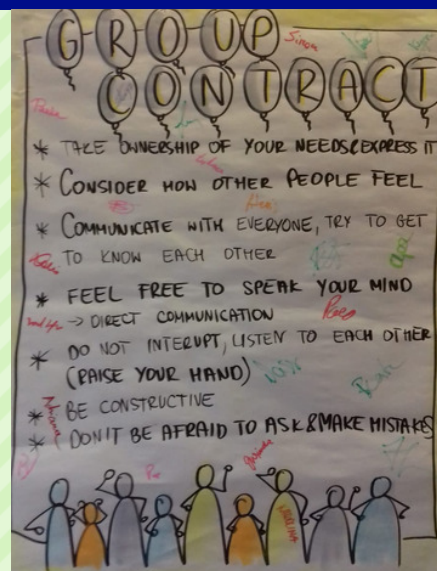 GROUP
Simon
CONTRACT
* TAKE OWNERSHIP OF YOUR NEEDS (EXPRESS IT
* CONSIDER HOW OTHER PEOPLE FEEL
* COMMUNICATE WITH EVERYONE, TRY TO GET
TO KNOW EACH OTHER
* FEEL FREE TO SPEAK YOUR MIND
→ DIRECT COMMUNICATION
* DO NOT INTERUPT, LISTEN TO EACH OTHER
(RAISE YOUR HAND)
* BE CONSTRUCTIVE
* DON'T BE AFRAID TO ASK & MAKE MISTAKES